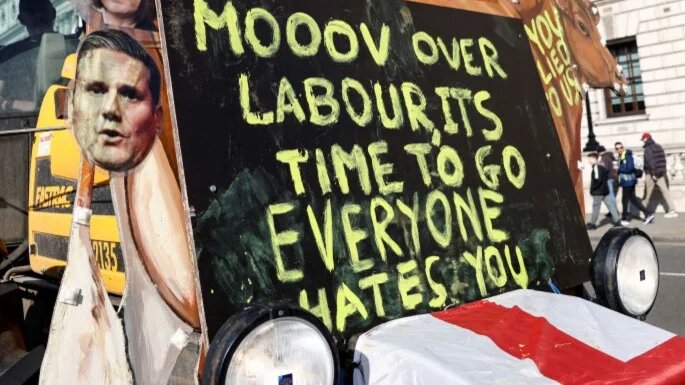 MOOOV OVER
LABOUR,ITS
TIME TO GO
EVERYONE
HATES YOU
YOU
LIED
TO
US
FASTRAC
7135